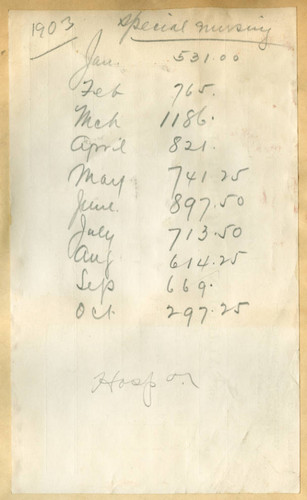 1903 special nursing
Jan. 531.00
Feb 765.
Mch 1186.
April 821.
May 741.25
June. 897.50
July 713.50
Aug 614.25
Sep 669.
Oct. 297.25
Hosp